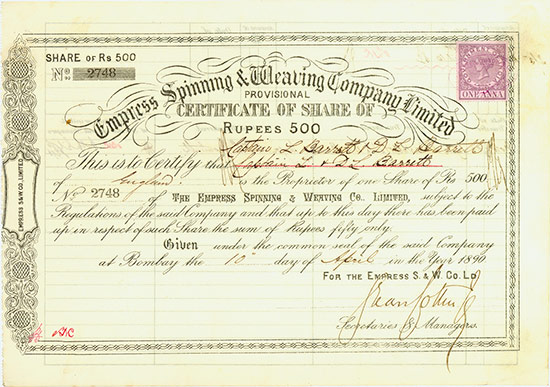 SHARE OF RS 500
No 2748
Empress Spinning & Weaving Company Limited
PROVISIONAL
CERTIFICATE OF SHARE OF
RUPEES 500
ONE ANNA
L. Barrett & D. L. Barrett
This is to Certify that Captain L & D L Barrett
of England is the Proprietor of one Share of Rs 500.
No 2748 of THE EMPRESS SPINNING & WEAVING CO., LIMITED, subject to the
Regulations of the said Company and that up to this day there has been paid
up in respect of such Share the sum of Rupees fifty only.
Given under the common seal of the said Company
at Bombay the 10th day of April in the Year 1890
FOR THE EMPRESS S. & W. CO. LD
Secretaries & Managers.
EMPRESS S. & W. CO., LIMITED